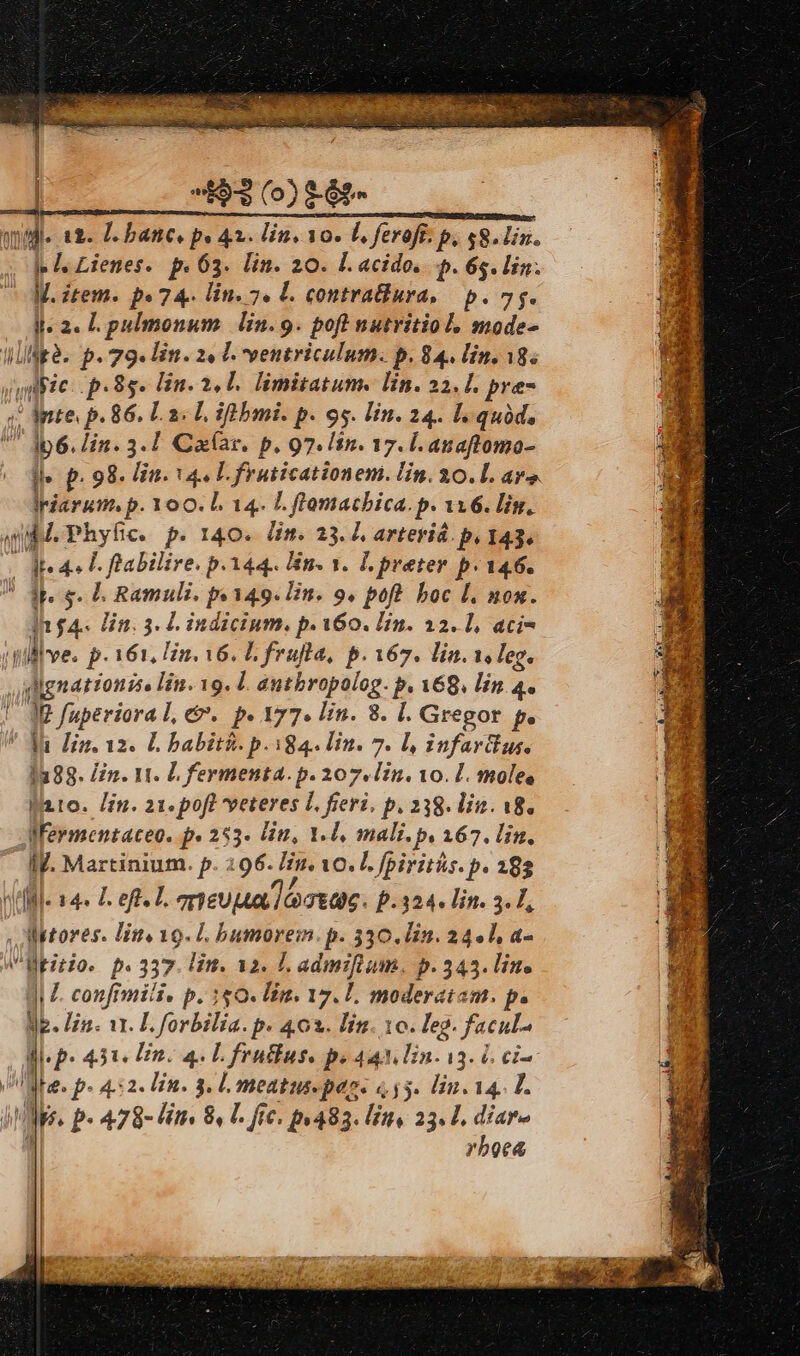 (o)
12. l. hanc, p. 42. lin. 10. l. ſeroſi: p. 58. lin.
l. Lienes. p. 63. lin. 20. l. acido. p. 65. lin.
l. item. p. 74. lin. 7. l. contractura, p. 75.
2. l. pulmonum lin. 9. poſt nutritio l. mode-
p. 79. lin. 2. l. ventriculum. p. 84. lin. 18.
p. 85. lin. 2. l. limitatum. lin. 22. l. præ-
p. 86. l. 2. l. iſthmi. p. 95. lin. 24. l. quòd.
lin. 3. l Cæſar. p. 97. lin. 17. l. anaſtomo-
p. 98. lin. 14. l. fruticationem. lin. 20. l. are
p. 100. l. 14. l. ſtomachica. p. 116. lin.
l. Phyſic. p. 140. lin. 23. l. arteriâ. p. 143.
4. l. ſtabilire. p. 144. lin. 1. l. præter p. 146.
5. l. Ramuli. p. 149. lin. 9. poſt hoc l. non.
154. lin. 3. l. indicium. p. 160. lin. 12. l. aci-
ve. p. 161, lin. 16. l. fruſta, p. 167. lin. 1. leg.
lin. 19. l. anthropolog. p. 168. lin 4.
ſuperiora l, &. p. 177. lin. 8. l. Gregor p.
lin. 12. l. habitû. p. 184. lin. 7. l, infarctus.
188. lin. 11. l. fermenta. p. 207. lin. 10. l. mole.
lin. 21. poſt veteres l. fieri. p. 238. lin. 18.
fermentaceo. p. 253. lin, 1. l, mali. p. 267. lin.
Martinium. p. 296. lin. 10. l. ſpiritûs. p. 283
14. l. eſt. l. p. 324. lin. 3. l,
lin. 19. l. humorem. p. 330. lin. 24. l, a-
p. 337. lin. 12. l. admiſtum. p. 343. lin.
l. conſimili. p. 350. lin. 17. l. moderatam. p.
lin. 11. l. ſorbilia. p. 402. lin. 10. leg. facul-
p. 431. lin. 4. l. fructus. p. 441. lin. 13. l. ci-
p. 452. lin. 3. l. meatus. pag. 455. lin. 14. l.
p. 478- lin. 8, l. ſic. p. 483. lin, 23. l. diar-
rhoea